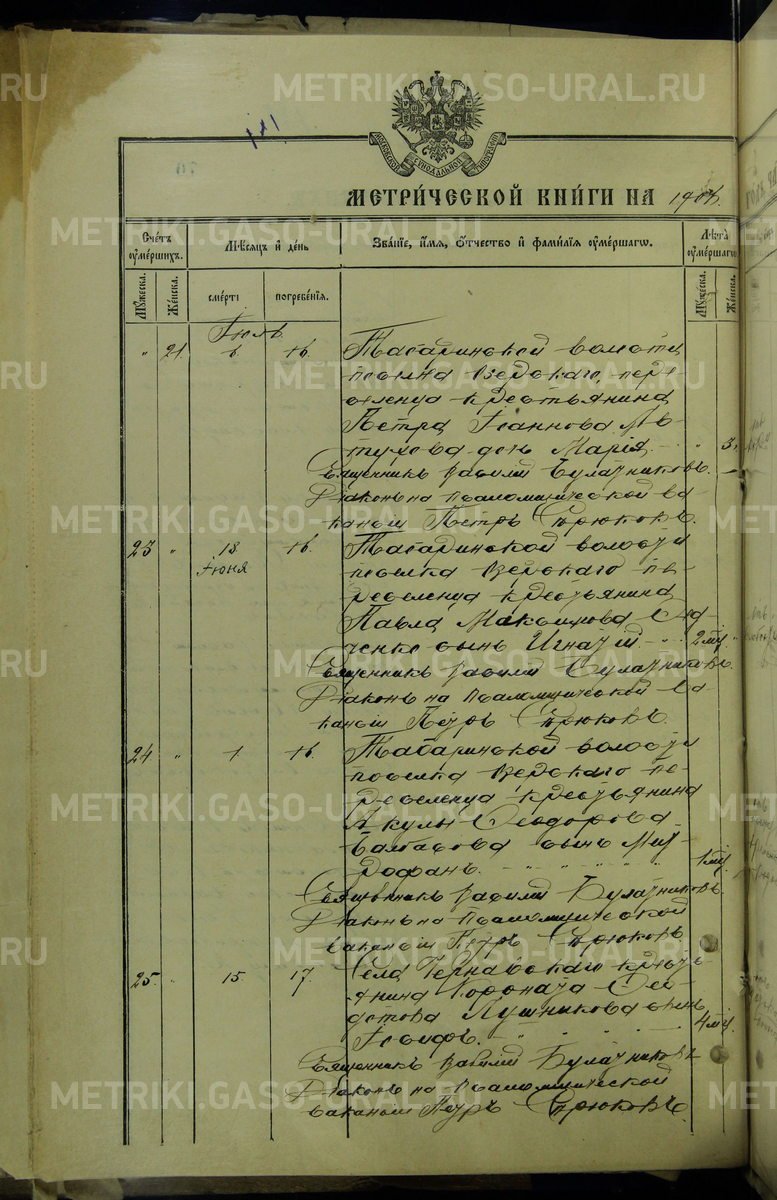 METRIKI.GASO-URAL.RU
МОСКОВСКОЙ СУНОДАЛЬНОЙ ТИПОГРАФІИ
МЕТРИ́ЧЕСКОЙ КНИ́ГИ НА 190
Сче́тъ ѹме́ршихъ.
Мѣ́сяцъ и҆ де́нь
Зва́нїе, и҆́мя, ѻ҆́тчество и҆ фами́лїя ѹме́ршаго.
Лѣта̀ ѹме́ршаго.
Мꙋ́жеска.
Же́нска.
сме́рти
погребе́нїя.
Мꙋ́жеска.
Же́нска.
Іюль
„ 21 6 16. Табаринской волости
поселка Озерскаго, пере
селенца крестьянина
Петра Іоаннова
дочь Марія
Священникъ Василій Булатниковъ.
Діаконъ на псаломщической ва
кансіи Петръ Бирюковъ.
23 „ 18 Іюня 16. Табаринской волости
поселка Озерскаго пе
реселенца крестьянина
Павла Максимова
ченко сынъ Игнатій 2 мц
Священникъ Василій Булатниковъ.
Діаконъ на псаломщической ва
кансіи Петръ Бирюковъ.
24 „ 1 16. Табаринской волости
поселка Озерскаго пе
реселенца крестьянина
Акулы Ѳеодорова
сынъ Мит
рофанъ. 1 мц.
Священникъ Василій Булатниковъ.
Діаконъ на псаломщической
вакансіи Петръ Бирюковъ
25. „ 15 17. Села Чернавскаго кресть
янина Короната Ѳео
сынъ
Іосифъ. 4 мц.
Священникъ Василій Булатниковъ
Діаконъ на псаломщической
вакансіи Петръ Бирюковъ.